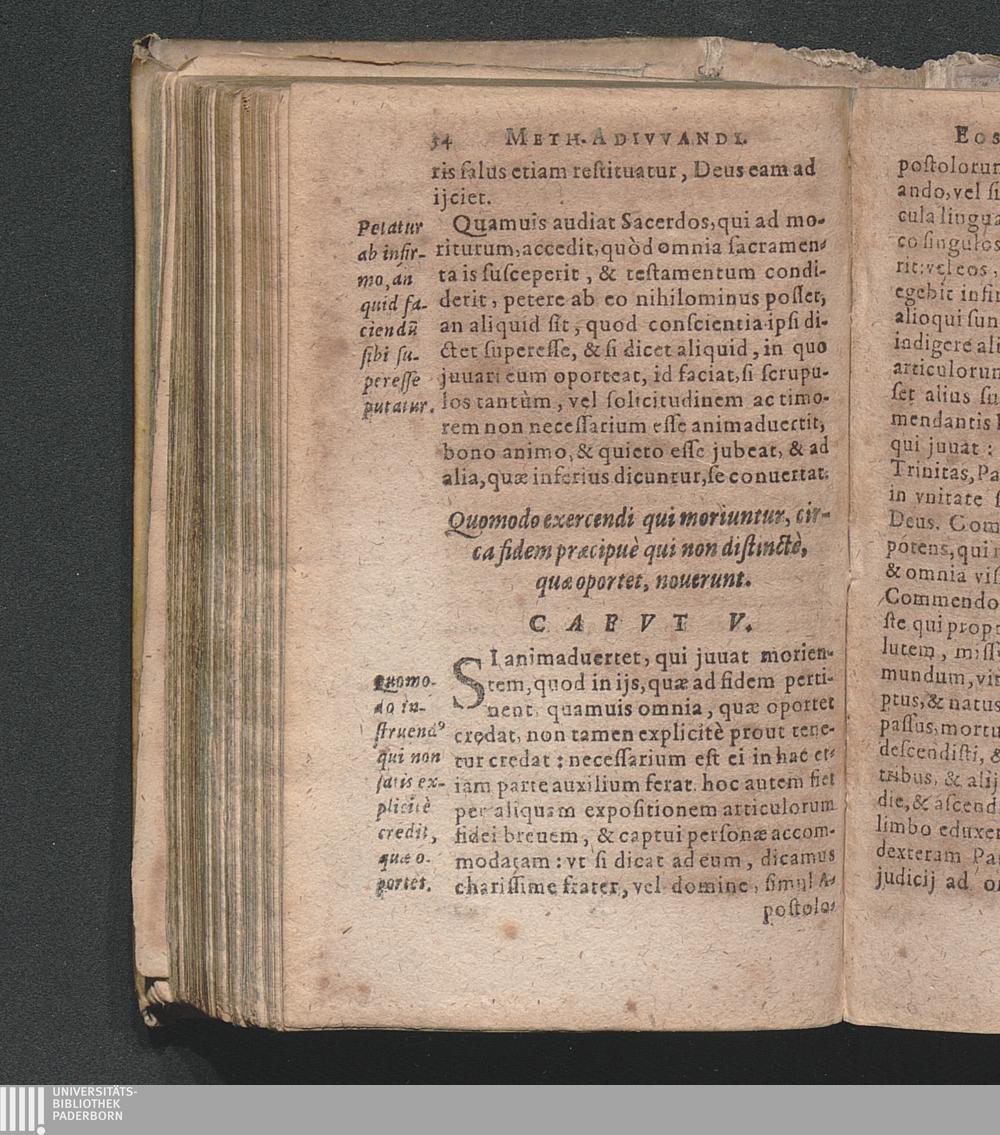 54 METH. ADIVVANDI.
ris ſalus etiam reſtituatur, Deus eam ad
ijciet.
Quamuis audiat Sacerdos, qui ad mo-
riturum, accedit, quòd omnia ſacramen-
ta is ſuſceperit, & teſtamentum condi-
derit, petere ab eo nihilominus poſſet,
an aliquid ſit, quod conſcientia ipſi di-
ctet ſupereſſe, & ſi dicet aliquid, in quo
juuari eum oporteat, id faciat, ſi ſcrupu-
los tantùm, vel ſolicitudinem ac timo-
rem non neceſſarium eſſe animaduertit,
bono animo, & quieto eſſe jubeat, & ad
alia, quæ inferius dicuntur, ſe conuertat.
Petatur
ab infir-
mo, án
quid fa-
ciendū
ſibi ſu-
pereſſe
putatur.
Quomodo exercendi qui moriuntur, cir-
ca fidem præcipuè qui non diſtinctè,
quæ oportet, nouerunt.
CAPVT V.
SI animaduertet, qui juuat morien-
tem, quod in ijs, quæ ad fidem perti-
nent quamuis omnia, quæ oportet
credat, non tamen explicitè prout tene-
tur credat: neceſſarium eſt ei in hac et-
iam parte auxilium ferat. hoc autem fiet
per aliquam expoſitionem articulorum
fidei breuem, & captui perſonæ accom-
modatam: vt ſi dicat ad eum, dicamus
chariſſime frater, vel domine, ſimul A-
poſtolo-
Quomo-
do in-
ſtruendꝰ
qui non
ſatis ex-
plicitè
credit,
quæ o-
portet.
EOS
poſtolorum
ando, vel ſi
cula lingua
co ſingulos
rit: vel eos,
egebit infir
alioqui ſun
indigere ali
articulorum
ſet alius ſu
mendantis
qui juuat:
Trinitas, Pa
in vnitate ſ
Deus. Com
potens, qui
& omnia viſ
Commendo
ſte qui prop
lutem, miſſ
mundum, vir
ptus, & natus
paſſus, mortu
deſcendiſti, &
tribus, & alij
die, & aſcend
limbo eduxer
dexteram Pa
judicij ad o
UNIVERSITÄTS-
BIBLIOTHEK
PADERBORN